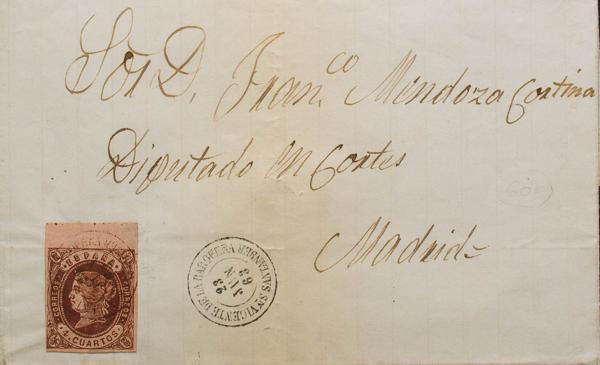 Sor D. Fran.co Mendoza Cortina
Diputado en Cortes
Madrid
ESPAÑA
CORREOS
4 CUARTOS
SN. VICENTE DE LA BARQUERA
SANTANDER
23
JUN
63